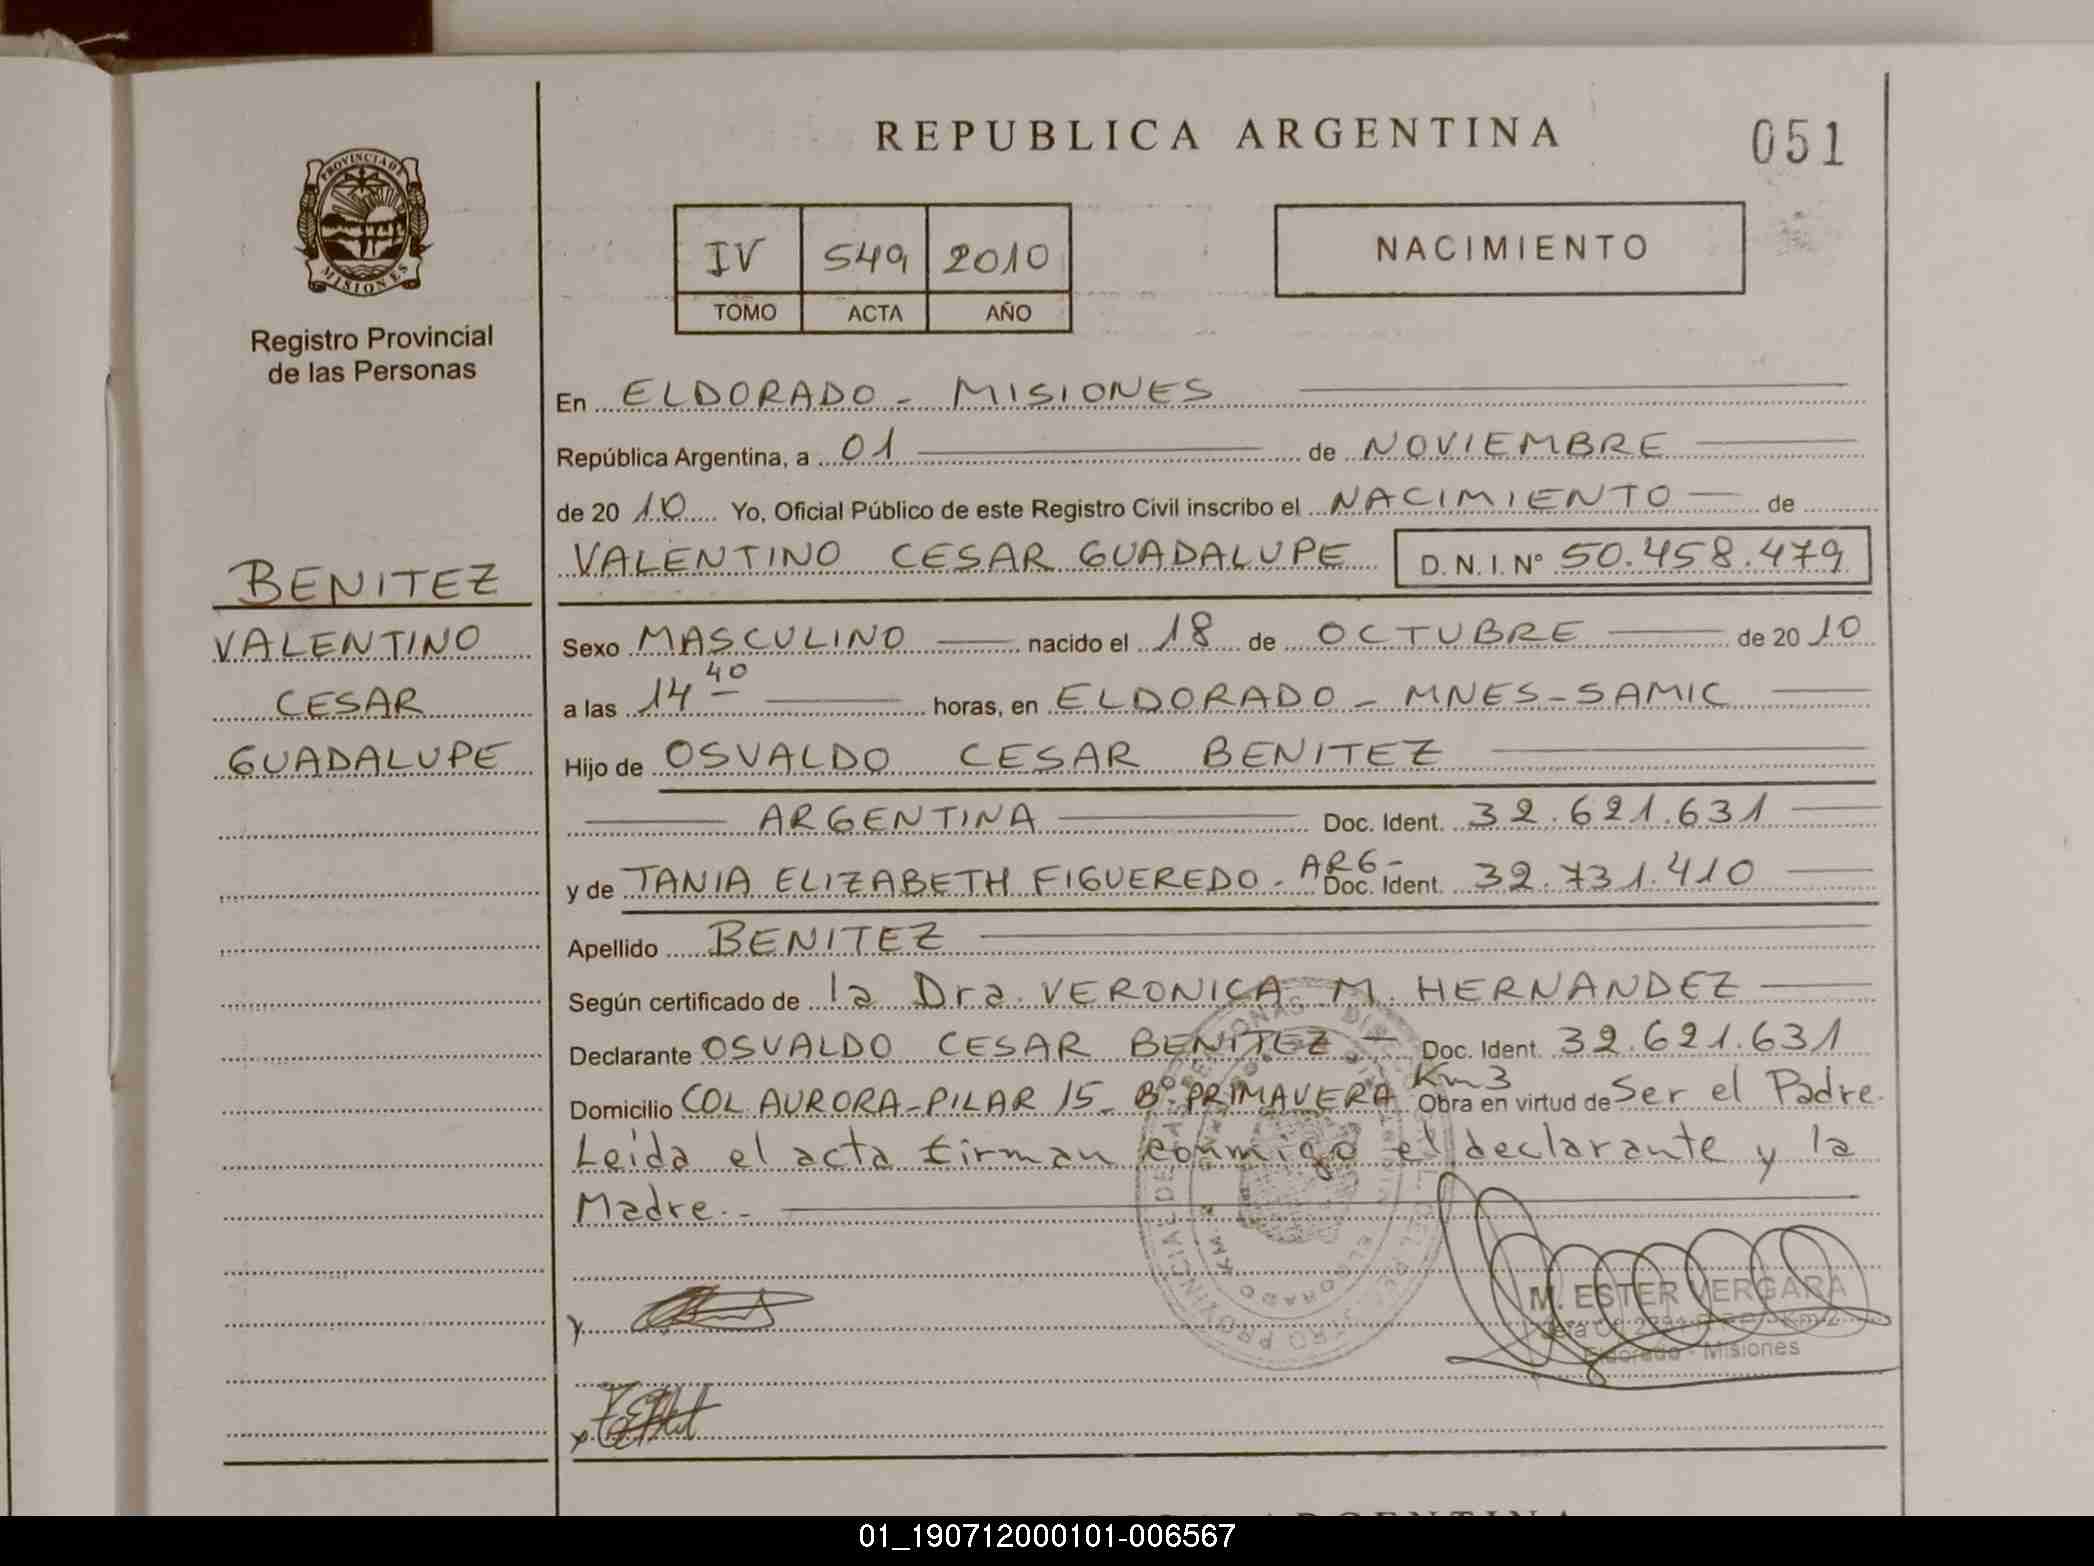 REPUBLICA ARGENTINA
051
PROVINCIA DE
MISIONES
Registro Provincial
de las Personas
IV 549 2010
TOMO ACTA AÑO
NACIMIENTO
En ELDORADO - MISIONES
República Argentina, a 01 de NOVIEMBRE
de 20 10 Yo, Oficial Público de este Registro Civil inscribo el NACIMIENTO de
VALENTINO CESAR GUADALUPE D. N. I. Nº 50.458.479
BENITEZ
VALENTINO
CESAR
GUADALUPE
Sexo MASCULINO nacido el 18 de OCTUBRE de 20 10
a las 14 40 horas, en ELDORADO - MNES - SAMIC
Hijo de OSVALDO CESAR BENITEZ
ARGENTINA Doc. Ident. 32.621.631
y de TANIA ELIZABETH FIGUEREDO - ARG - Doc. Ident. 32.731.410
Apellido BENITEZ
Según certificado de la Dra. VERONICA M. HERNANDEZ
Declarante OSVALDO CESAR BENITEZ - Doc. Ident. 32.621.631
Domicilio COL. AURORA - PILAR 15 - Bº. PRIMAVERA Km 3 Obra en virtud de Ser el Padre.
Leida el acta firman conmigo el declarante y la
Madre. -
M. ESTER VERGARA
Eldorado - Misiones
01_190712000101-006567